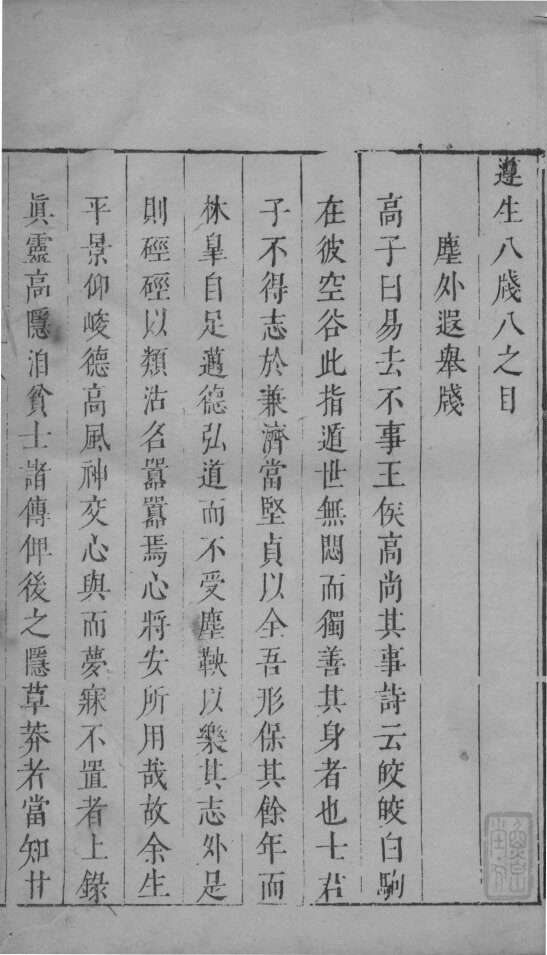 遵生八牋八之目
塵外遐舉牋
高子曰易去不事王侯高尚其事詩云皎皎白駒
在彼空谷此指遁世無悶而獨善其身者也士君
子不得志於兼濟當堅貞以全吾形保其餘年而
林皐自足邁德弘道而不受塵鞅以樂其志外是
則硜硜以類沽名嚣嚣焉心將安所用哉故余生
平景仰峻德高風神交心與而夢寐不置者上錄
真靈高隱洎貧士諸傳俾後之隱草莽者當知甘